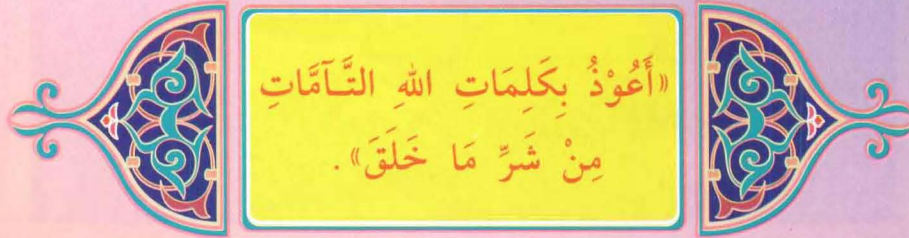 «أَعُوْذُ بِكَلِمَاتِ اللهِ التَّآمَّاتِ
مِنْ شَرِّ مَا خَلَقَ».